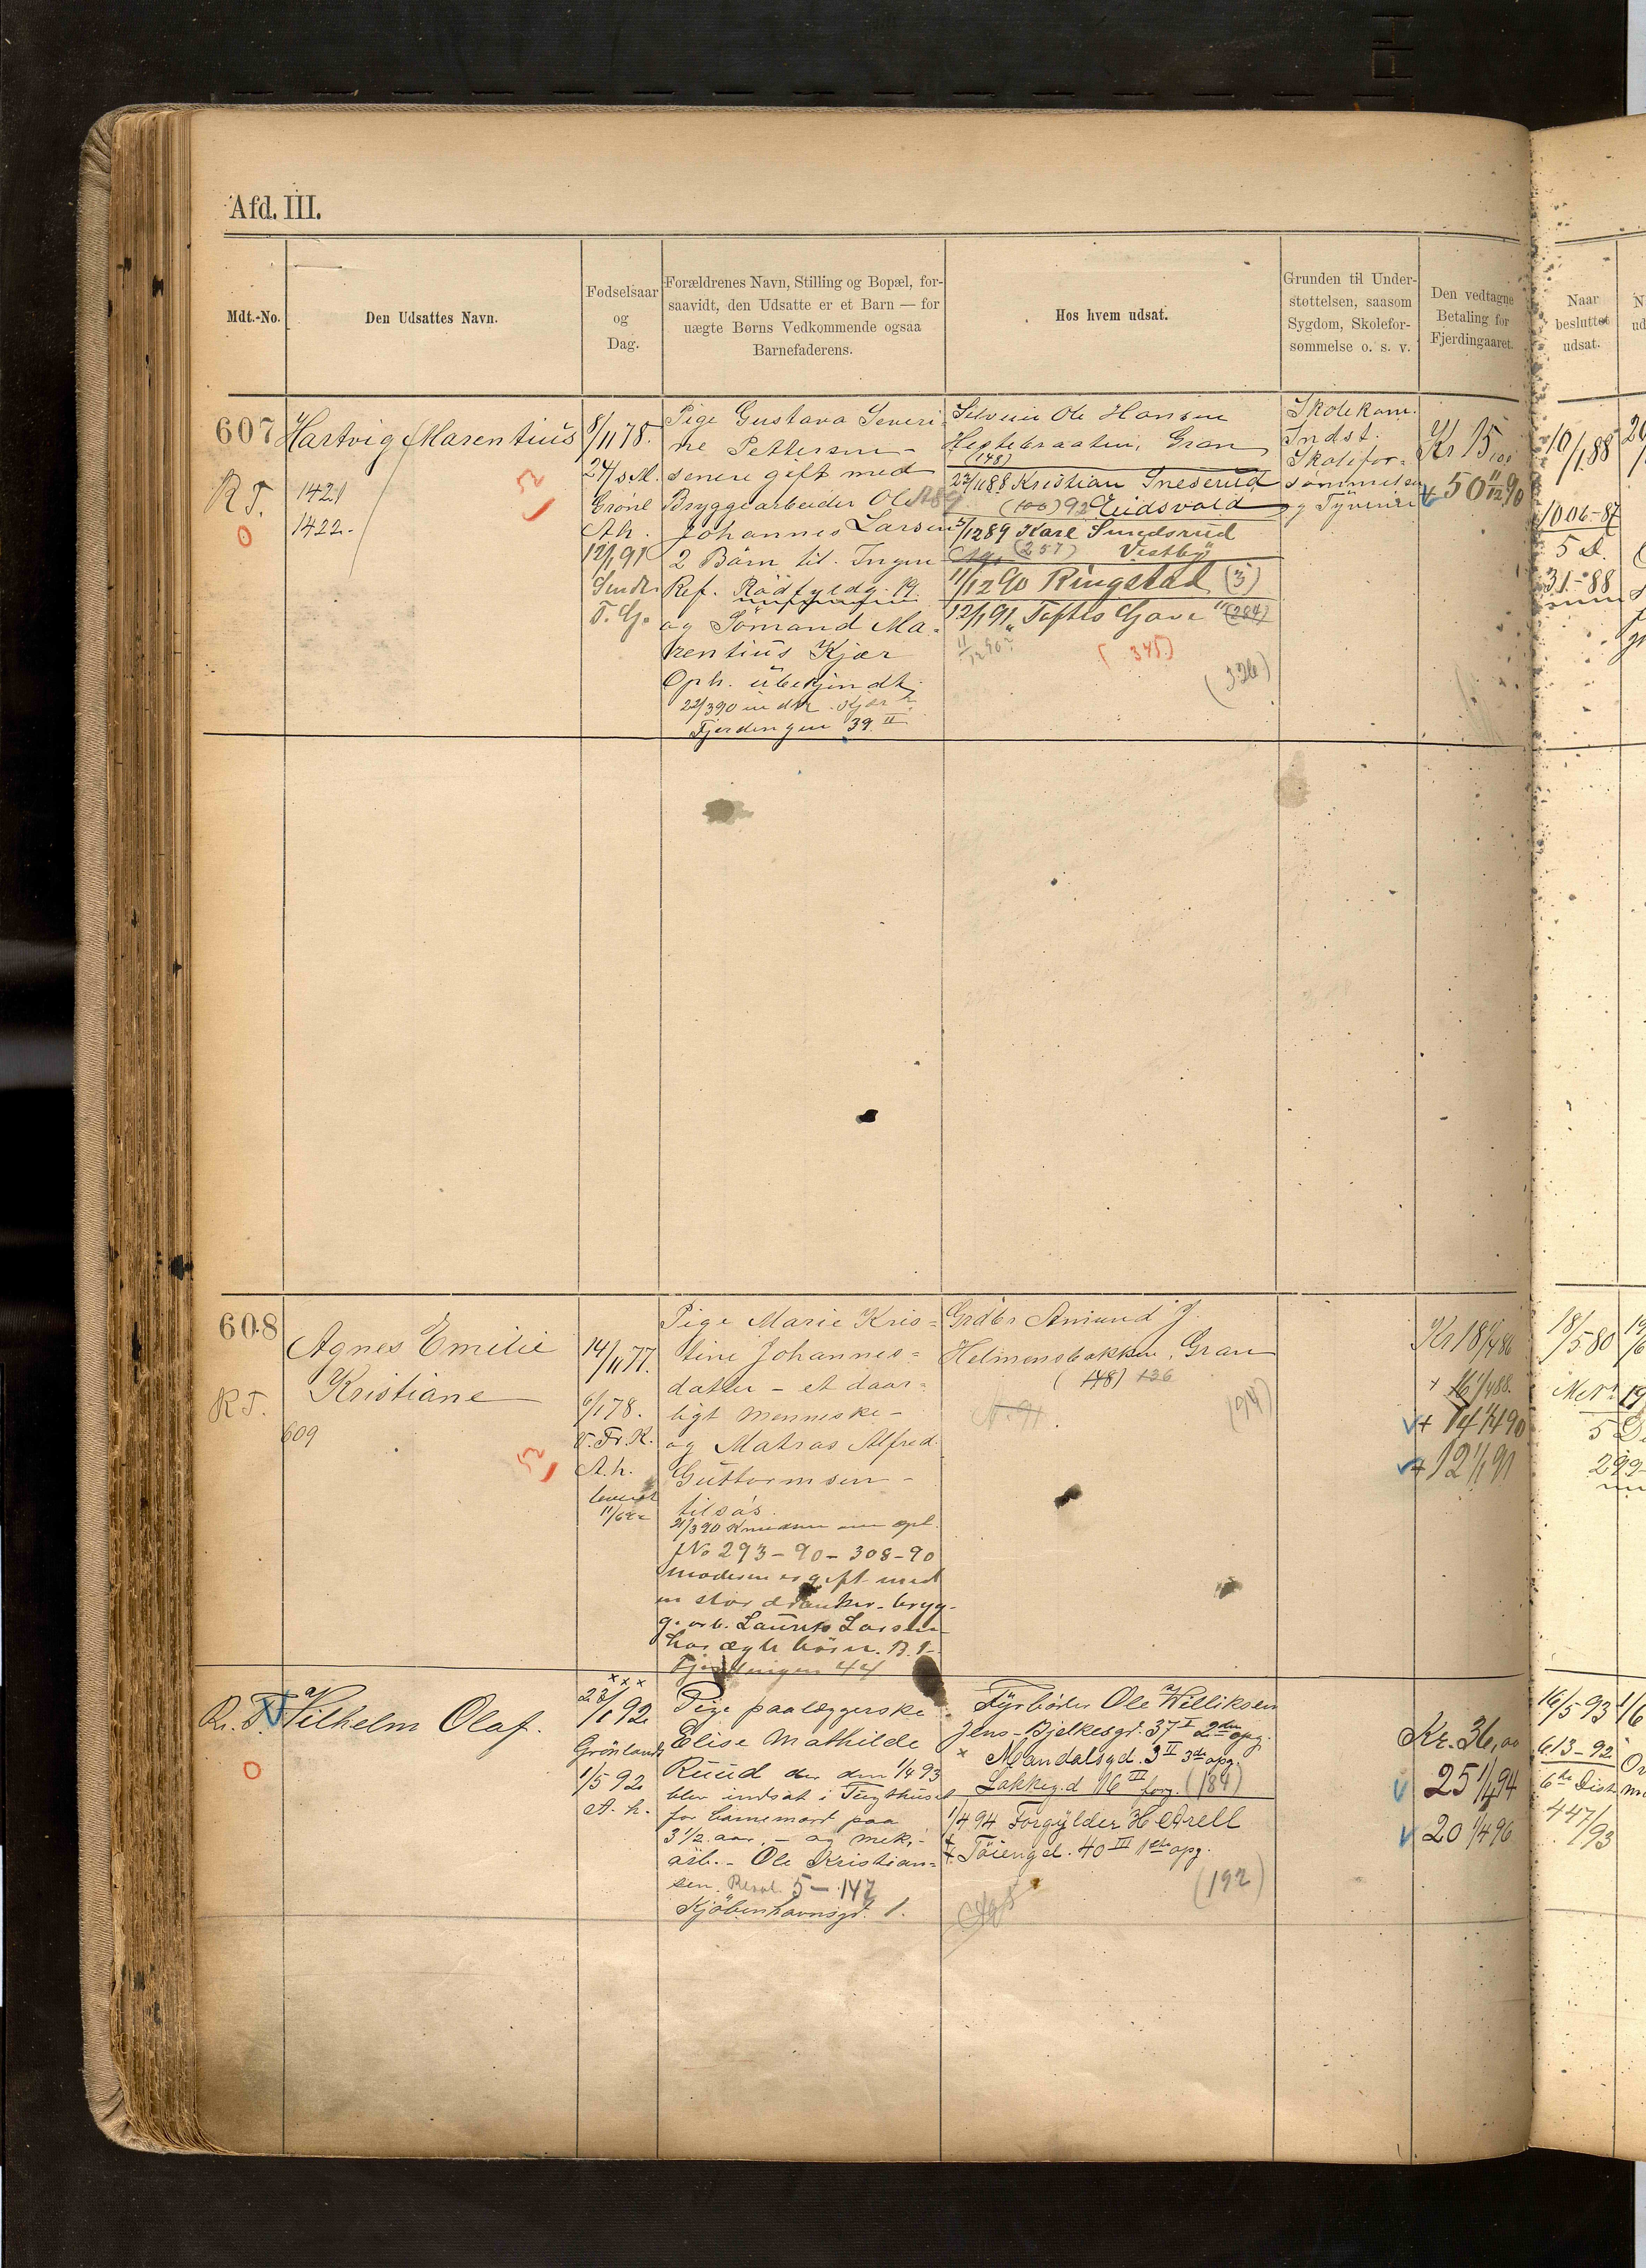 Afd. III.
Mdt.-No.
Den Udsattes Navn.
Fødselsaar
og
Dag.
Forældrenes Navn, Stilling og Bopæl, for-
saavidt, den Udsatte er et Barn — for
uægte Børns Vedkommende ogsaa
Barnefaderens.
Hos hvem udsat.
Grunden til Under-
støttelsen, saasom
Sygdom, Skolefor-
sømmelse o. s. v.
Den vedtagne
Betaling for
Fjerdingaaret.
Naar
besluttet
udsat.
607
R T.
0
Hartvig Marentius
1421
1422.
8/11 78.
24/5 Af.
Grönl
A.h.
12/1 91
T. G.
Pige Gustava Severi-
ne Pettersen -
senere gift med
Bryggearbeider Ole
Johannes Larsen
2 Börn til. Ingen
Ref. Rödfyldg. 19.
og Sömand Ma-
rentius Kjær
Oph. ubekjendt.
22/3 90
Fjerdingen 39 II
Selveier Ole Hansen
Hestebraaten, Gran
(148)
23/11 88 Kristian Sneserud
(100) 92 Eidsvold
5/12 89 Karl Smedsrud
(257) Vestby
11/12 90 Ringstad (3)
12/1 91 "Toftes Gave" (284)
(345)
(326)
Skolekom.
Indst.
Skolefor-
sömmelse
og Tyveri
Kr 15,00
50 11/12 90
10/1 88
1006-87
5 D.
31-88
608
R T.
Agnes Emilie
Kristiane
609
14/11 77.
6/1 78.
V. Fr. K.
A. h.
Pige Marie Kris-
tine Johannes-
datter - et daar-
ligt Menneske -
og Matros Alfred
Guttormsen -
tilsös.
21/3 90
JNo 293-90-308-90
Moderen er gift med
en stor dranker - bryg-
g.arb. Laurits Larsen
har ægte börn.
Fjerdingen 44
Grdbr Amund J.
Helmensbakken, Gran
(148) 126
(94)
Kr 18 1/4 86
+ 16 1/4 88.
+ 14 1/4 90
+ 12 1/1 91
18/5 80
R. T.
0
Vilhelm Olaf.
×××
23/1 92
Grönlands
1/5 92
A. h.
Pige paalæggerske
Elise Mathilde
Ruud der den 1/4 93
blev indsat i Tugthuset
for barnemord paa
3 1/2 aar. - og mek.-
arb. - Ole Kristian-
sen. Resol. 5-147
Kjöbenhavnsgd. 1.
Fyrböder Ole Williksen
Jens-Bjelkesgd. 37 I 2den opg.
× Mandalsgd. 3 II 3de opg.
Lakkeg.d 16 III forg. (184)
1/4 94 Forgylder H Arell
Töiengd. 40 III 1ste opg.
(192)
Kr. 36,00
25 1/4 94
20 1/4 96
16/5 93
613-92
6te Dist.
447/93